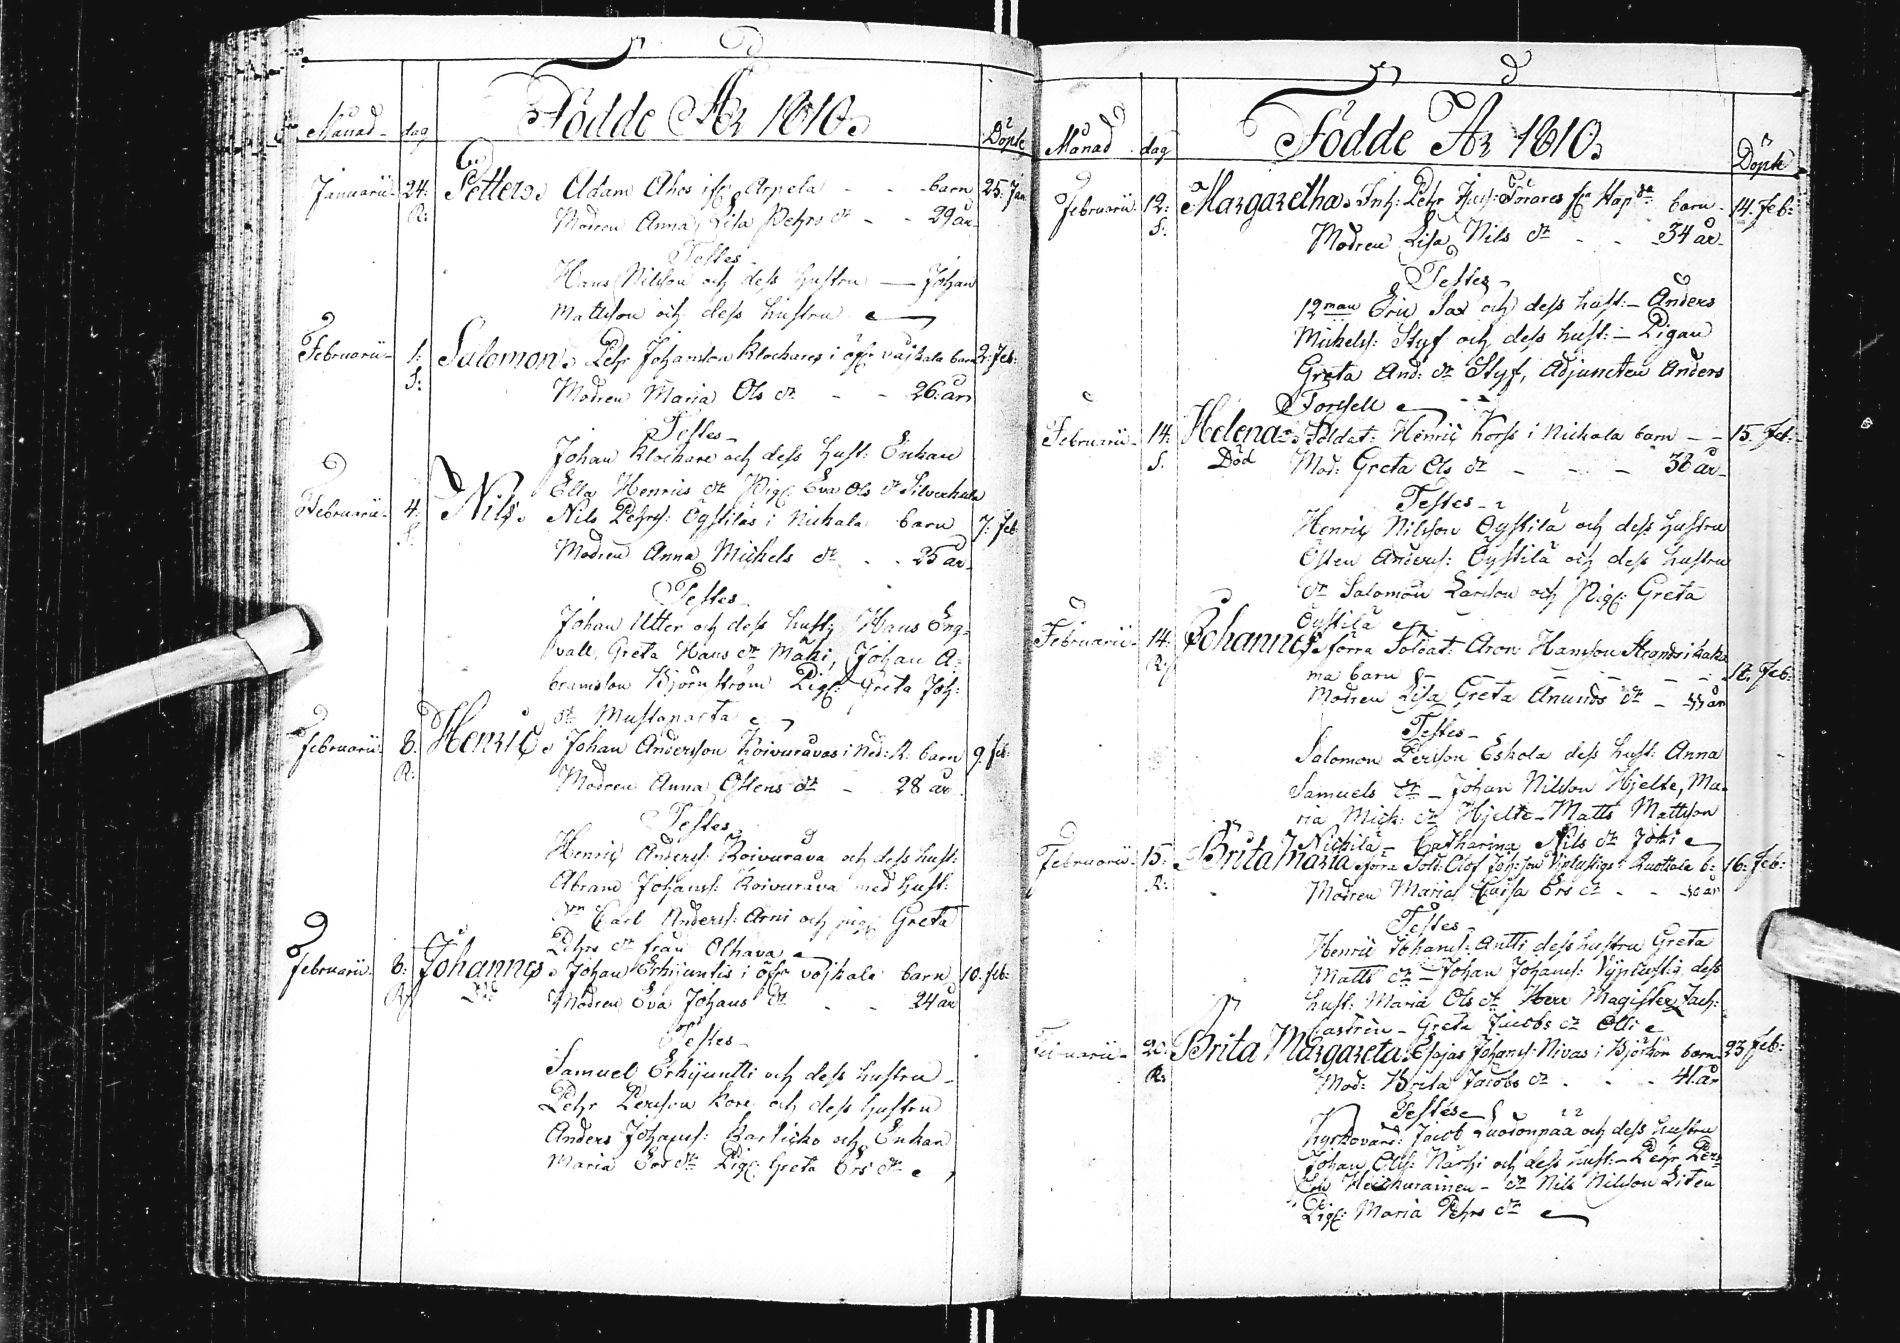 Födde År 1810.
Månad dag Döpte
Januarii 24. Petter. Adam Ahos ifr. Arpela - - barn 25. Jan.
R: Modren Anna Lisa Pehrs dr - - 29 år
Testes
Hans Nilsson och dess hustru — Johan
Mattsson och dess hustru
Februarii 1: Salomon. Pehr Johansson Klockares i öfr Vojkala barn 2: Feb:
S: Modren Maria Ols dr - - 26: år
Testes
Johan Klockare och dess hust: Enkan
Ella Henrics dr Pig: Eva Ols dr
Februarii 4: Nils. Nils Pehrs: Öystilas i Nickala barn 7: Feb
S: Modren Anna Mickels dr - - 25 år
Testes
Johan Utter och dess hust: Hans Eng-
vall, Greta Hans dr Mäki, Johan A-
bramsson Björnström Pig: Greta Joh:
dr Mustaparta
Februarii 8: Henric. Johan Andersson Koivuravas i Ned: K: barn 9. Feb:
R: Modren Anna Östens dr - 28 år
Testes
Henric Anders: Koivurava och dess hust:
Abram Johans: Koivurava med hust:
Carl Anders: Arni och pig: Greta
Pehrs dr från Olhava
Februarii 8: Johannes. Johan Erkijuntis i öfr Vojkala barn 10. Feb:
R: Död Modren Eva Johans dr - - 24 år
Testes
Samuel Erkijuntti och dess hustru
Pehr Persson Kore och dess hustru
Anders Johans: Karticko och Enkan
Maria Ers dr Pig: Greta Ers dr
Födde År 1810.
Månad dag Döpte
Februarii 12: Margaretha. Inh: Pehr barn 14. Feb:
S: Modren Lisa Nils dr - - 34 år
Testes
12man Eric Sax och dess hust: - Anders
Mickels: Styf och dess hust: - Pigan
Greta And: dr Styf, Adjuncten Anders
Forssell
Februarii 14: Helena. Soldat: Henric Korss i Nickala barn - - 15. Feb:
S. Död Mod: Greta Ols dr - - - 32 år
Testes
Henric Nilsson Öystilä och dess hustru
Östen Anders: Öystilä och dess hustru
dr Salomon Larsson och Pig: Greta
Öystilä
Februarii 14: Johannes. förra Soldat: Aron Hansson
R: ma barn - - - 14. Feb:
Modren Lisa Greta Anunds dr - år
Testes
Salomon Persson Eskola dess hust: Anna
Samuels dr - Johan Nilsson Hjelte, Ma-
ria Mich: dr Hjelte - Matts Mattsson
Nickilä - Catharina Nils dr Joki
Februarii 15: Brita Maria. förra Sold: Olof Johansson i Ruottala b: 16. Feb:
R: Modren Maria Caisa Ers dr - - år
Testes
Henric Johans: Antti dess hustru Greta
Matts dr - Johan Johans: dess
hust: Maria Ols dr Herr Magister Zach:
Castrén - Greta Jacobs dr Olli
Februarii 20: Brita Margareta. Esajas Johans: Nivas i Björkön barn 23 Feb:
R: Mod: Brita Jacobs dr - - - 41. år
Testes
Kyrkovärd: Jacob Luodonpää och dess hustru
Johan Ols: Närhi och dess hust: - Pehr Pers
Heickurainen - dr Nils Nilsson Liten
Pig: Maria Pehrs dr